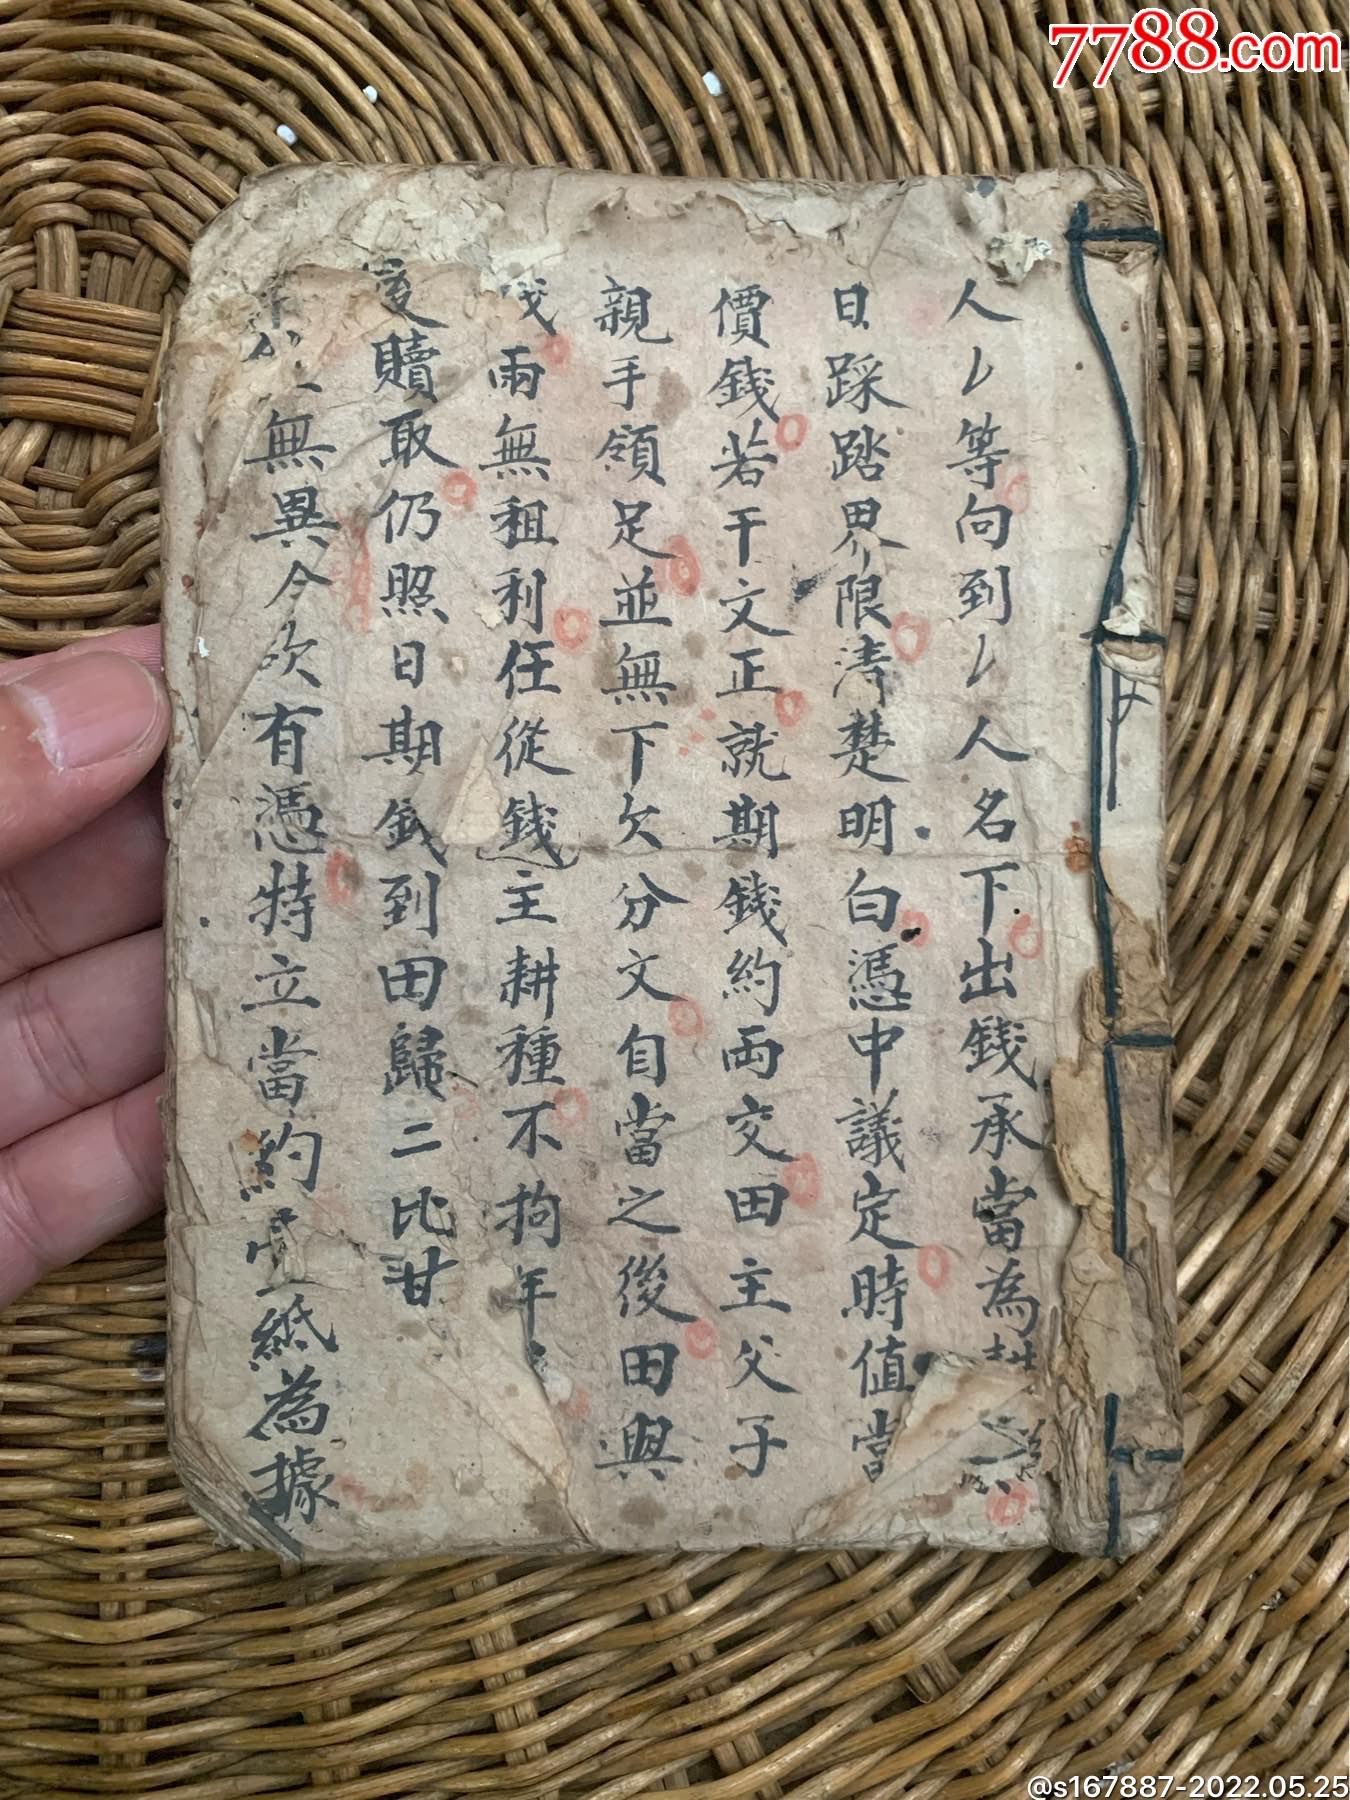 7788.com
人厶等向到厶人名下出錢承當為耕
日踩踏界限清楚明白憑中議定時值當
價錢若干文正就期錢約両交田主父子
親手領足並無下欠分文自當之後田與
錢兩無租利任從錢主耕種不拘年
贖取仍照日期錢到田歸二比甘
無異今欲有憑特立當約壹紙為據
@s167887-2022.05.25